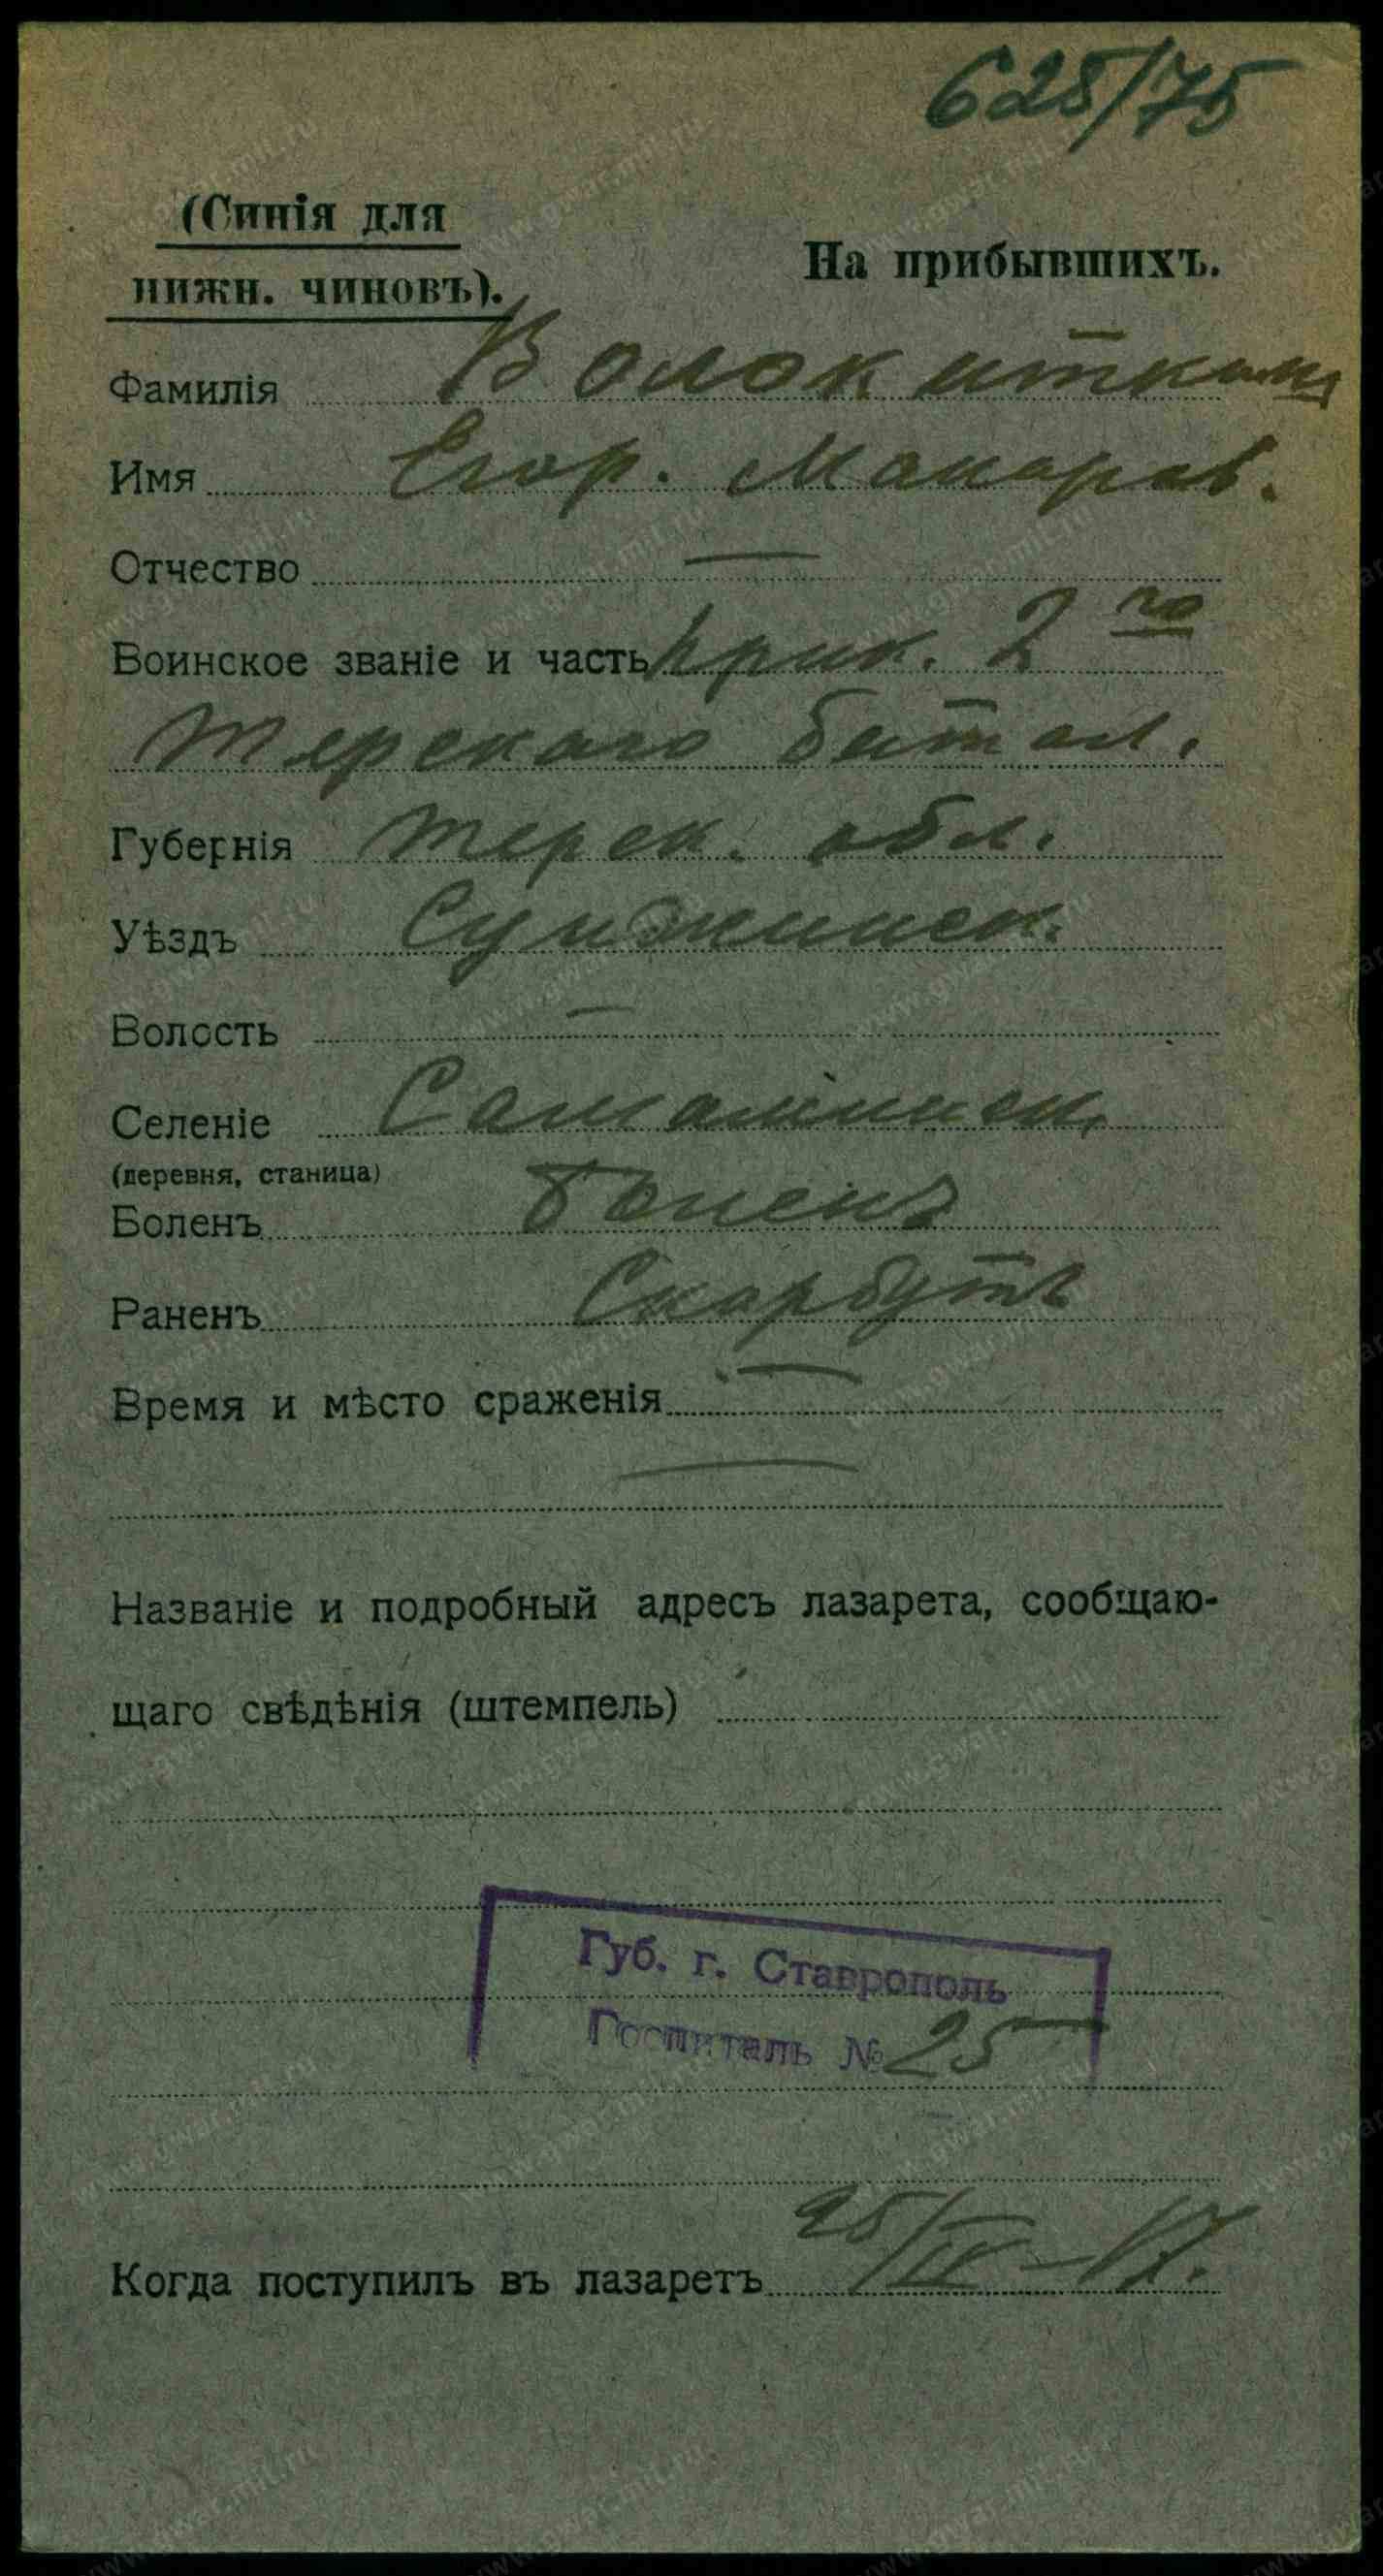 625/75
(Синія для
нижн. чиновъ).
На прибывшихъ.
Фамилія Волокиткинъ
Имя Егор. Макаров.
Отчество —
Воинское званіе и часть прик. 2го
Терскаго батал.
Губернія терск. обл.
Уѣздъ Сунженск.
Волость —
Селеніе
(деревня, станица)
Боленъ боленъ
Раненъ Скорбутъ
Время и мѣсто сраженія —
—
Названіе и подробный адресъ лазарета, сообщаю-
щаго свѣдѣнія (штемпель)
Губ. г. Ставрополь
Госпиталь № 25
Когда поступилъ въ лазаретъ 25/IV-17.